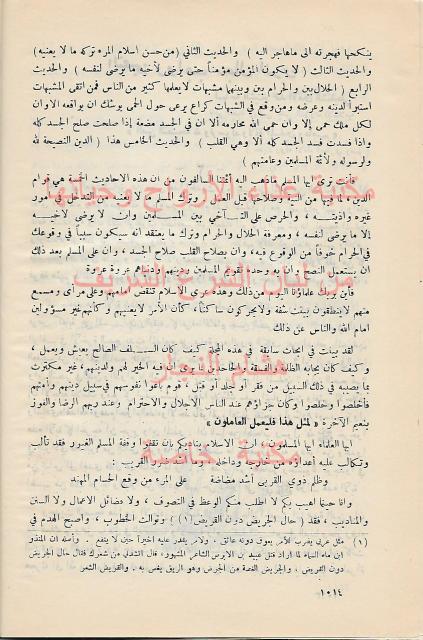 ينكحها فهجرته الى ماهاجر اليه ) والحديث الثاني (من حسن اسلام المرء تركه ما لا يعنيه)
والحديث الثالث ( لا يكون المؤمن مؤمناً حتى يرضى لأخيه ما يرضى لنفسه ) والحديث
الرابع ( الحلال بين والحرام بين وبينهما مشبهات لا يعلمها كثير من الناس فمن اتقى المشبهات
استبرأ لدينه وعرضه ومن وقع في الشبهات كراع يرعى حول الحمى يوشك ان يواقعه الا وان
لكل ملك حمى إلا وان حمى الله محارمه ألا ان في الجسد مضغة إذا صلحت صلح الجسد كله
واذا فسدت فسد الجسد كله ألا وهي القلب ) والحديث الخامس هذا ( الدين النصيحة لله
ولرسوله ولأئمة المسلمين وعامتهم )
فأنت ترى ايها المسلم ماذهب اليه أئمتنا السالفون من ان هذه الاحاديث الخمسة هي قوام
الدين ، لما فيها من النية وصلاحها قبل العمل ، وترك المسلم ما لا يعنيه من التدخل في امور
غيره واذيته ، والحرص على التآخي بين المسلمين وان لا يرضى لأخيه
إلا ما يرضى لنفسه ، ومعرفة الحلال والحرام وترك ما يعتقد انه سيكون سبباً في وقوعك
في الحرام خوفاً من الوقوع فيه ، وان بصلاح القلب صلاح الجسد ، وان على المسلم بعد ذلك
ان يستعمل النصح وان به وحده تقويم المسلمين ودينهم ودنياهم عروة عروة
فأين بربك علماؤنا اليوم من ذلك وهذه عرى الاسلام تنقض امامهم وعلى مرأى ومسمع
منهم لا ينطقون ببنت شفة ولا يحركون ساكناً ، كأن الأمر لا يعنيهم وكأنهم غير مسؤولين
امام الله والناس عن ذلك
لقد بينت في ابحاث سابقة في هذه المجلة كيف كان السلف الصالح يعيش ويعمل ،
وكيف كان يجابه الظلمة والفسقة والجاحدين بما يرى ان فيه الخير لهم ولدينهم ، غير مكترث
بما يصيبه في ذلك السبيل من فقر أو جلد أو قتل ، قوم باعوا نفوسهم في سبيل دينهم وأمتهم
فأخلصوا وخلصوا وكان جزاؤهم عند الناس الاجلال والاحترام وعند ربهم الرضا والفوز
بنعيم الآخرة « لمثل هذا فليعمل العاملون »
ايها العلماء ايها المسلمون ، ان الاسلام يناديكم بان تقفوا وقفة المسلم الغيور فقد تألب
وتكالب عليه أعداؤه من خارجه وداخله ، وما اشد ضرر القريب :
وظلم ذوي القربى أشد مضاضة على المرء من وقع الحسام المهند
وانا حينما اهيب بكم لا اطلب منكم الوعظ في التصوف ، ولا فضائل الاعمال ولا السنن
والمناديب ، فقد ( حال الجريض دون القريض (١) ) وتوالت الخطوب ، واصبح الهدم في
(١) مثل عربي يضرب للأمر يعوق دونه عائق . ولامر يقدر عليه اخيراً حين لا ينفع . وأصله ان المنذر
ابن ماء السماء لما اراد قتل عبيد بن الابرص الشاعر المشهور، قال انشدني من شعرك فقال حال الجريض
دون القريض ، والجريض الغصة من الجرض وهو الريق يغص به . والقريض الشعر
١٠١٤
مكتبة غذاء الأرواح وحياتها
من لبان الشرع الشريف
هشام النجار
مكتبة خاصة